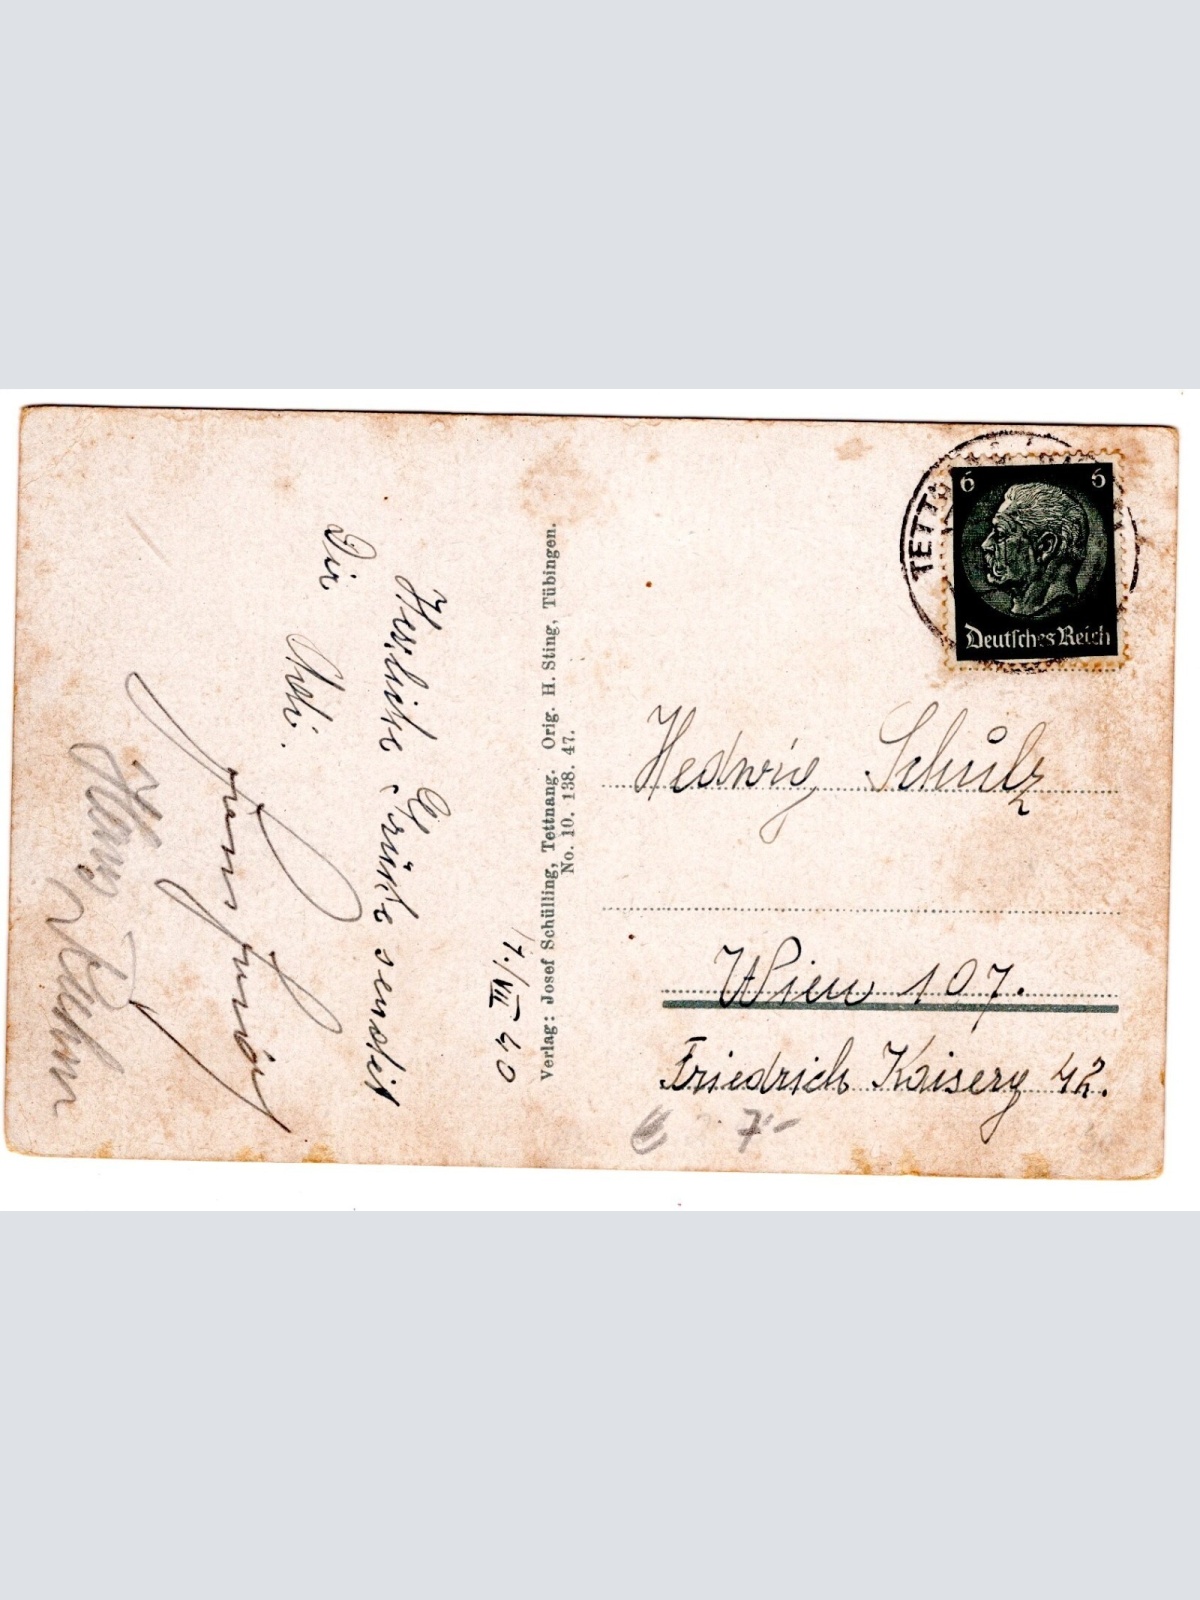 7./VII 40
Herzliche Grüße sendet
Dir
Verlag: Josef Schülling, Tettnang. Orig. H. Sting, Tübingen.
No. 10. 138. 47.
TETTN
6 6
Deutsches Reich
Hedwig Schulz
Wien 107.
Friedrich Kaiserg 42.
7.-